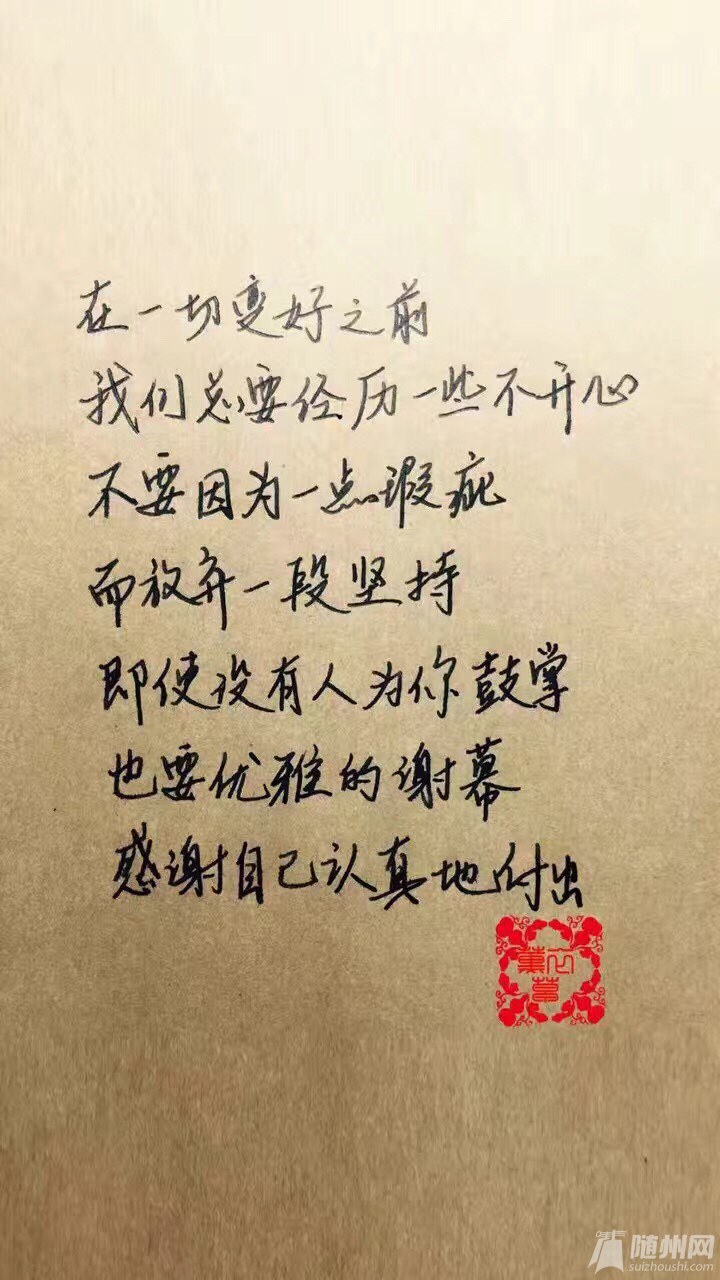 在一切变好之前
我们总要经历一些不开心
不要因为一点瑕疵
而放弃一段坚持
即使没有人为你鼓掌
也要优雅的谢幕
感谢自己认真地付出
随州网
suizhoushi.com